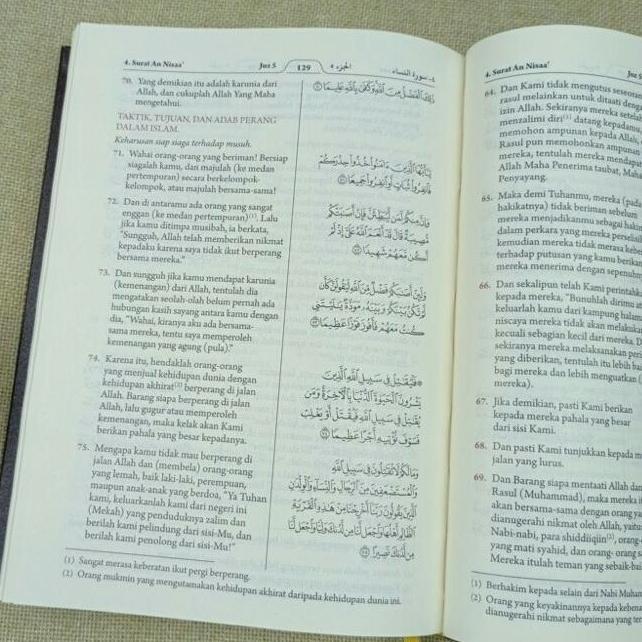 4. Surat An Nisaa'
Juz 5
129
الجزء ٥
٤- سورة النساء
70. Yang demikian itu adalah karunia dari
Allah, dan cukuplah Allah Yang Maha
mengetahui.
TAKTIK, TUJUAN, DAN ADAB PERANG
DALAM ISLAM.
Keharusan siap siaga terhadap musuh.
71. Wahai orang-orang yang beriman! Bersiap
siagalah kamu, dan majulah (ke medan
pertempuran) secara berkelompok-
kelompok, atau majulah bersama-sama!
72. Dan di antaramu ada orang yang sangat
enggan (ke medan pertempuran)(1). Lalu
jika kamu ditimpa musibah, ia berkata,
"Sungguh, Allah telah memberikan nikmat
kepadaku karena saya tidak ikut berperang
bersama mereka."
73. Dan sungguh jika kamu mendapat karunia
(kemenangan) dari Allah, tentulah dia
mengatakan seolah-olah belum pernah ada
hubungan kasih sayang antara kamu dengan
dia, "Wahai, kiranya aku ada bersama-
sama mereka, tentu saya memperoleh
kemenangan yang agung (pula)."
74. Karena itu, hendaklah orang-orang
yang menjual kehidupan dunia dengan
kehidupan akhirat(2) berperang di jalan
Allah. Barang siapa berperang di jalan
Allah, lalu gugur atau memperoleh
kemenangan, maka kelak akan Kami
berikan pahala yang besar kepadanya.
75. Mengapa kamu tidak mau berperang di
jalan Allah dan (membela) orang-orang
yang lemah, baik laki-laki, perempuan,
maupun anak-anak yang berdoa, "Ya Tuhan
kami, keluarkanlah kami dari negeri ini
(Mekah) yang penduduknya zalim dan
berilah kami pelindung dari sisi-Mu, dan
berilah kami penolong dari sisi-Mu!"
ذَٰلِكَ ٱلْفَضْلُ مِنَ ٱللَّهِ وَكَفَىٰ بِٱللَّهِ عَلِيمًا ٧٠
يَٰٓأَيُّهَا ٱلَّذِينَ ءَامَنُوا۟ خُذُوا۟ حِذْرَكُمْ
فَٱنفِرُوا۟ ثُبَاتٍ أَوِ ٱنفِرُوا۟ جَمِيعًا ٧١
وَإِنَّ مِنكُمْ لَمَن لَّيُبَطِّئَنَّ فَإِنْ أَصَٰبَتْكُم
مُّصِيبَةٌ قَالَ قَدْ أَنْعَمَ ٱللَّهُ عَلَىَّ إِذْ لَمْ
أَكُن مَّعَهُمْ شَهِيدًا ٧٢
وَلَئِنْ أَصَٰبَكُمْ فَضْلٌ مِّنَ ٱللَّهِ لَيَقُولَنَّ كَأَن
لَّمْ تَكُنۢ بَيْنَكُمْ وَبَيْنَهُۥ مَوَدَّةٌ يَٰلَيْتَنِى
كُنتُ مَعَهُمْ فَأَفُوزَ فَوْزًا عَظِيمًا ٧٣
۞ فَلْيُقَٰتِلْ فِى سَبِيلِ ٱللَّهِ ٱلَّذِينَ
يَشْرُونَ ٱلْحَيَوٰةَ ٱلدُّنْيَا بِٱلْءَاخِرَةِ وَمَن
يُقَٰتِلْ فِى سَبِيلِ ٱللَّهِ فَيُقْتَلْ أَوْ يَغْلِبْ
فَسَوْفَ نُؤْتِيهِ أَجْرًا عَظِيمًا ٧٤
وَمَا لَكُمْ لَا تُقَٰتِلُونَ فِى سَبِيلِ ٱللَّهِ
وَٱلْمُسْتَضْعَفِينَ مِنَ ٱلرِّجَالِ وَٱلنِّسَآءِ وَٱلْوِلْدَٰنِ
ٱلَّذِينَ يَقُولُونَ رَبَّنَآ أَخْرِجْنَا مِنْ هَٰذِهِ ٱلْقَرْيَةِ
ٱلظَّالِمِ أَهْلُهَا وَٱجْعَل لَّنَا مِن لَّدُنكَ وَلِيًّا وَٱجْعَل لَّنَا
مِن لَّدُنكَ نَصِيرًا ٧٥
(1) Sangat merasa keberatan ikut pergi berperang.
(2) Orang mukmin yang mengutamakan kehidupan akhirat daripada kehidupan dunia ini.
4. Surat An Nisaa'
64. Dan Kami tidak mengutus seseorang
rasul melainkan untuk ditaati dengan
izin Allah. Sekiranya mereka setelah
menzalimi diri(1) datang kepadamu
memohon ampunan kepada Allah,
Rasul pun memohonkan ampunan
mereka, tentulah mereka mendapati
Allah Maha Penerima taubat, Maha
Penyayang.
65. Maka demi Tuhanmu, mereka (pada
hakikatnya) tidak beriman sebelum
mereka menjadikanmu sebagai hakim
dalam perkara yang mereka
kemudian mereka tidak merasa
terhadap putusan yang kamu berikan
mereka menerima dengan sepenuhnya
66. Dan sekalipun telah Kami perintahkan
kepada mereka, "Bunuhlah dirimu
keluarlah kamu dari kampung
niscaya mereka tidak akan
kecuali sebagian kecil dari mereka. D
sekiranya mereka melaksanakan
yang diberikan, tentulah itu lebih baik
bagi mereka dan lebih menguatkan
mereka).
67. Jika demikian, pasti Kami berikan
kepada mereka pahala yang besar
dari sisi Kami.
68. Dan pasti Kami tunjukkan kepada m
jalan yang lurus.
69. Dan Barang siapa mentaati Allah dan
Rasul (Muhammad), maka mereka
akan bersama-sama dengan orang ya
dianugerahi nikmat oleh Allah, yaitu
Nabi-nabi, para shiddiiqiin(2), orang-
yang mati syahid, dan orang- orang s
Mereka itulah teman yang sebaik-bai
(1) Berhakim kepada selain dari Nabi Muham
(2) Orang yang keyakinannya kepada kebena
dianugerahi nikmat sebagaimana yang